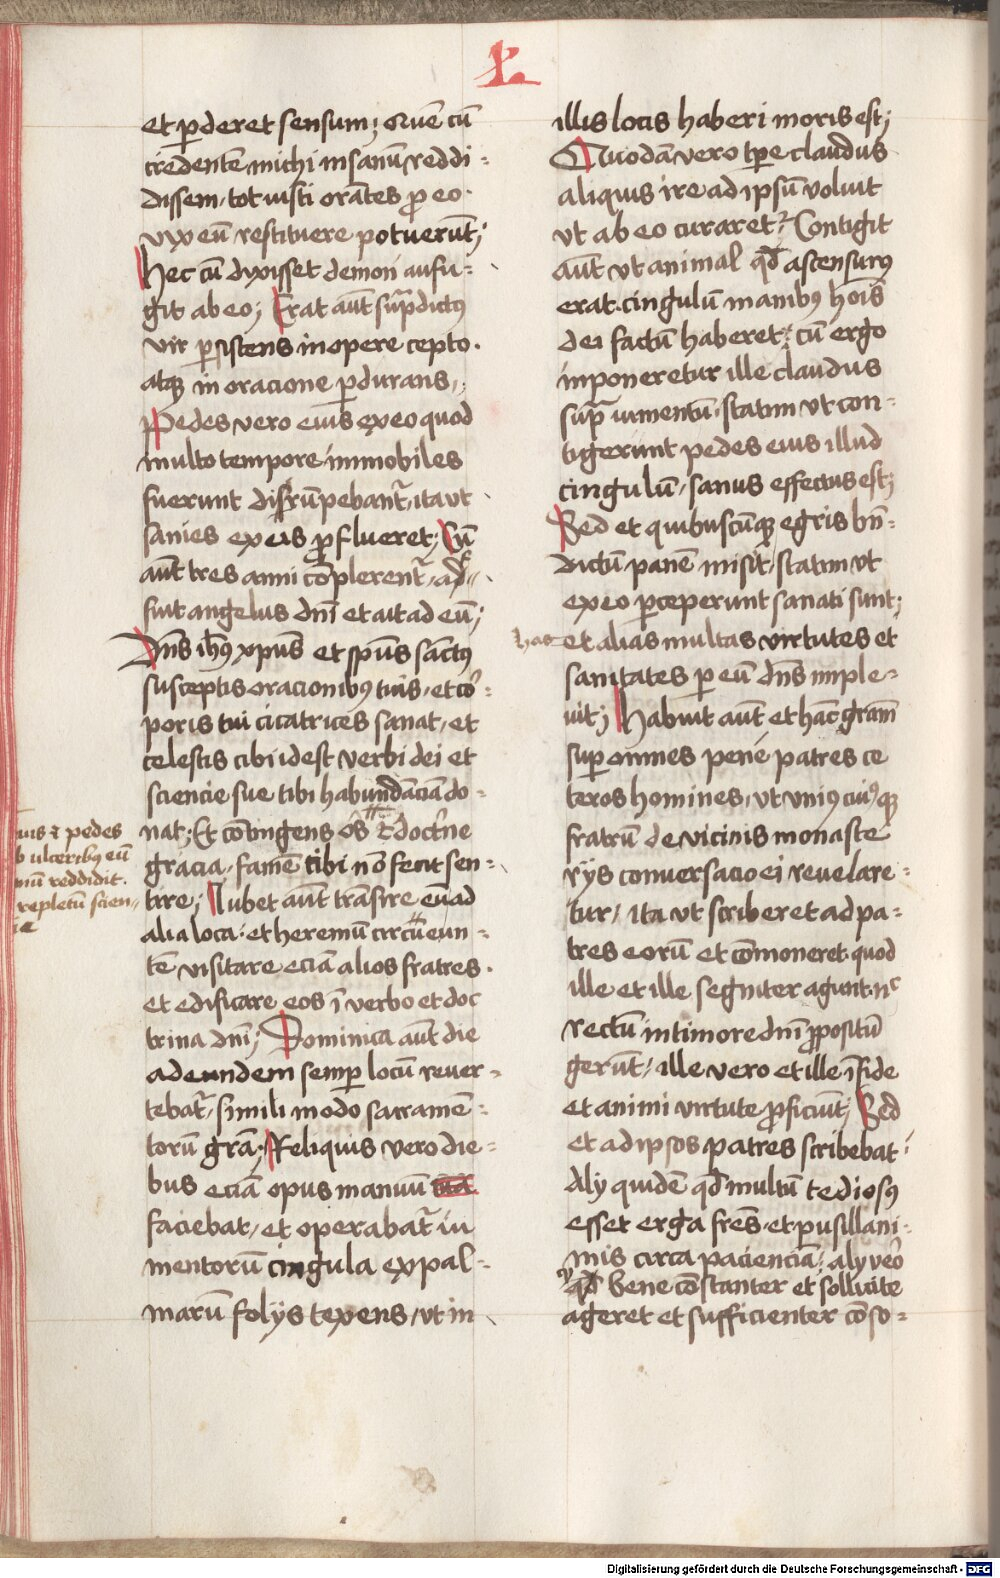 L
et p̲deret sensum; Quē cū
credentē michi insanū reddi-
dissem, tot iusti orātes ꝓ eo
vix eū restituere potuerūt;
Hec cū dixisset demon aufu-
git ab eo; Erat aūt sup̄dictus
vir ꝑsistens in opere cepto.
atqꝫ in oracione ꝑdurans,
Pedes vero eius ex eo quod
multo tempore immobiles
fuerunt disrūpebant᷑, ita vt
sanies ex eis ꝓflueret; Cū
aūt tres anni cōplerent᷑, ad-
fuit angelus dn̄i et ait ad eū;
Dn̄s ihūs xpūs et sp̄us sāctꝰ
susceptis oracionibꝰ tuis, et cor-
poris tui cicatrices sanat, et
celestis cibi idest verbi dei et
sciencie sue tibi habundāciā do-
nat; Et cōtingens os et doct᷑ne
gracia, famē tibi nō fecit sen-
tire; Iubet aūt trāsire eū ad
alia loca, et heremū circūeun-
tē visitare eciā alios fratres.
et edificare eos ī verbo et doc
trina dn̄i; Dominica aūt die
ad eundem semꝑ locū rever-
tebat᷑, simili modo sacramē-
torū grā; Reliquis vero die-
bus eciā opus manuū
faciebat, et operabat᷑ iu
mentorū cingula ex pal-
marū folijs texens, vt in
ius et pedes
b ulceribꝰ eū
nū reddidit.
repletū scien-
ie
illis locis haberi moris est;
Quodā vero tꝑe claudus
aliquis ire ad ipsū voluit
vt ab eo curaret᷑; Contigit
aūt vt animal qd̄ ascensurꝰ
erat, cingulū manibꝰ hoīs
dei factū haberet; cū ergo
inponeretur ille claudus
sup̄ iumentū, statim vt con-
tigerunt pedes eius illud
cingulū, sanus effectus est;
Sed et quibuscūqꝫ egris bn̄-
dictū panē misit, statim vt
ex eo ꝑceperunt sanati sunt;
has et alias multas virtutes et
sanitates ꝑ eū dn̄s imple-
uit; Habuit aūt et hāc grām
suꝑ omnes pene patres ce
teros homines, vt vniꝰcuiꝰqꝫ
fratrū de vicinis monaste
rijs conuersacio ei reuelare-
tur, ita vt scriberet ad pa-
tres eorū et cōmoneret, quod
ille et ille segniter agunt, nc̄
rectū in timore dn̄i ꝓpositū
gerūt, ille vero et ille ī fide
et animi virtute ꝓficiūt; Sed
et ad ipsos patres scribebat
Alij quidē qd̄ multū tediosꝰ
esset erga frēs, et pusillani-
mis circa pacienciā, alij verō
qd̄ bene cōstanter et sollicite
ageret et sufficienter cōso-
Digitalisierung gefördert durch die Deutsche Forschungsgemeinschaft - DFG